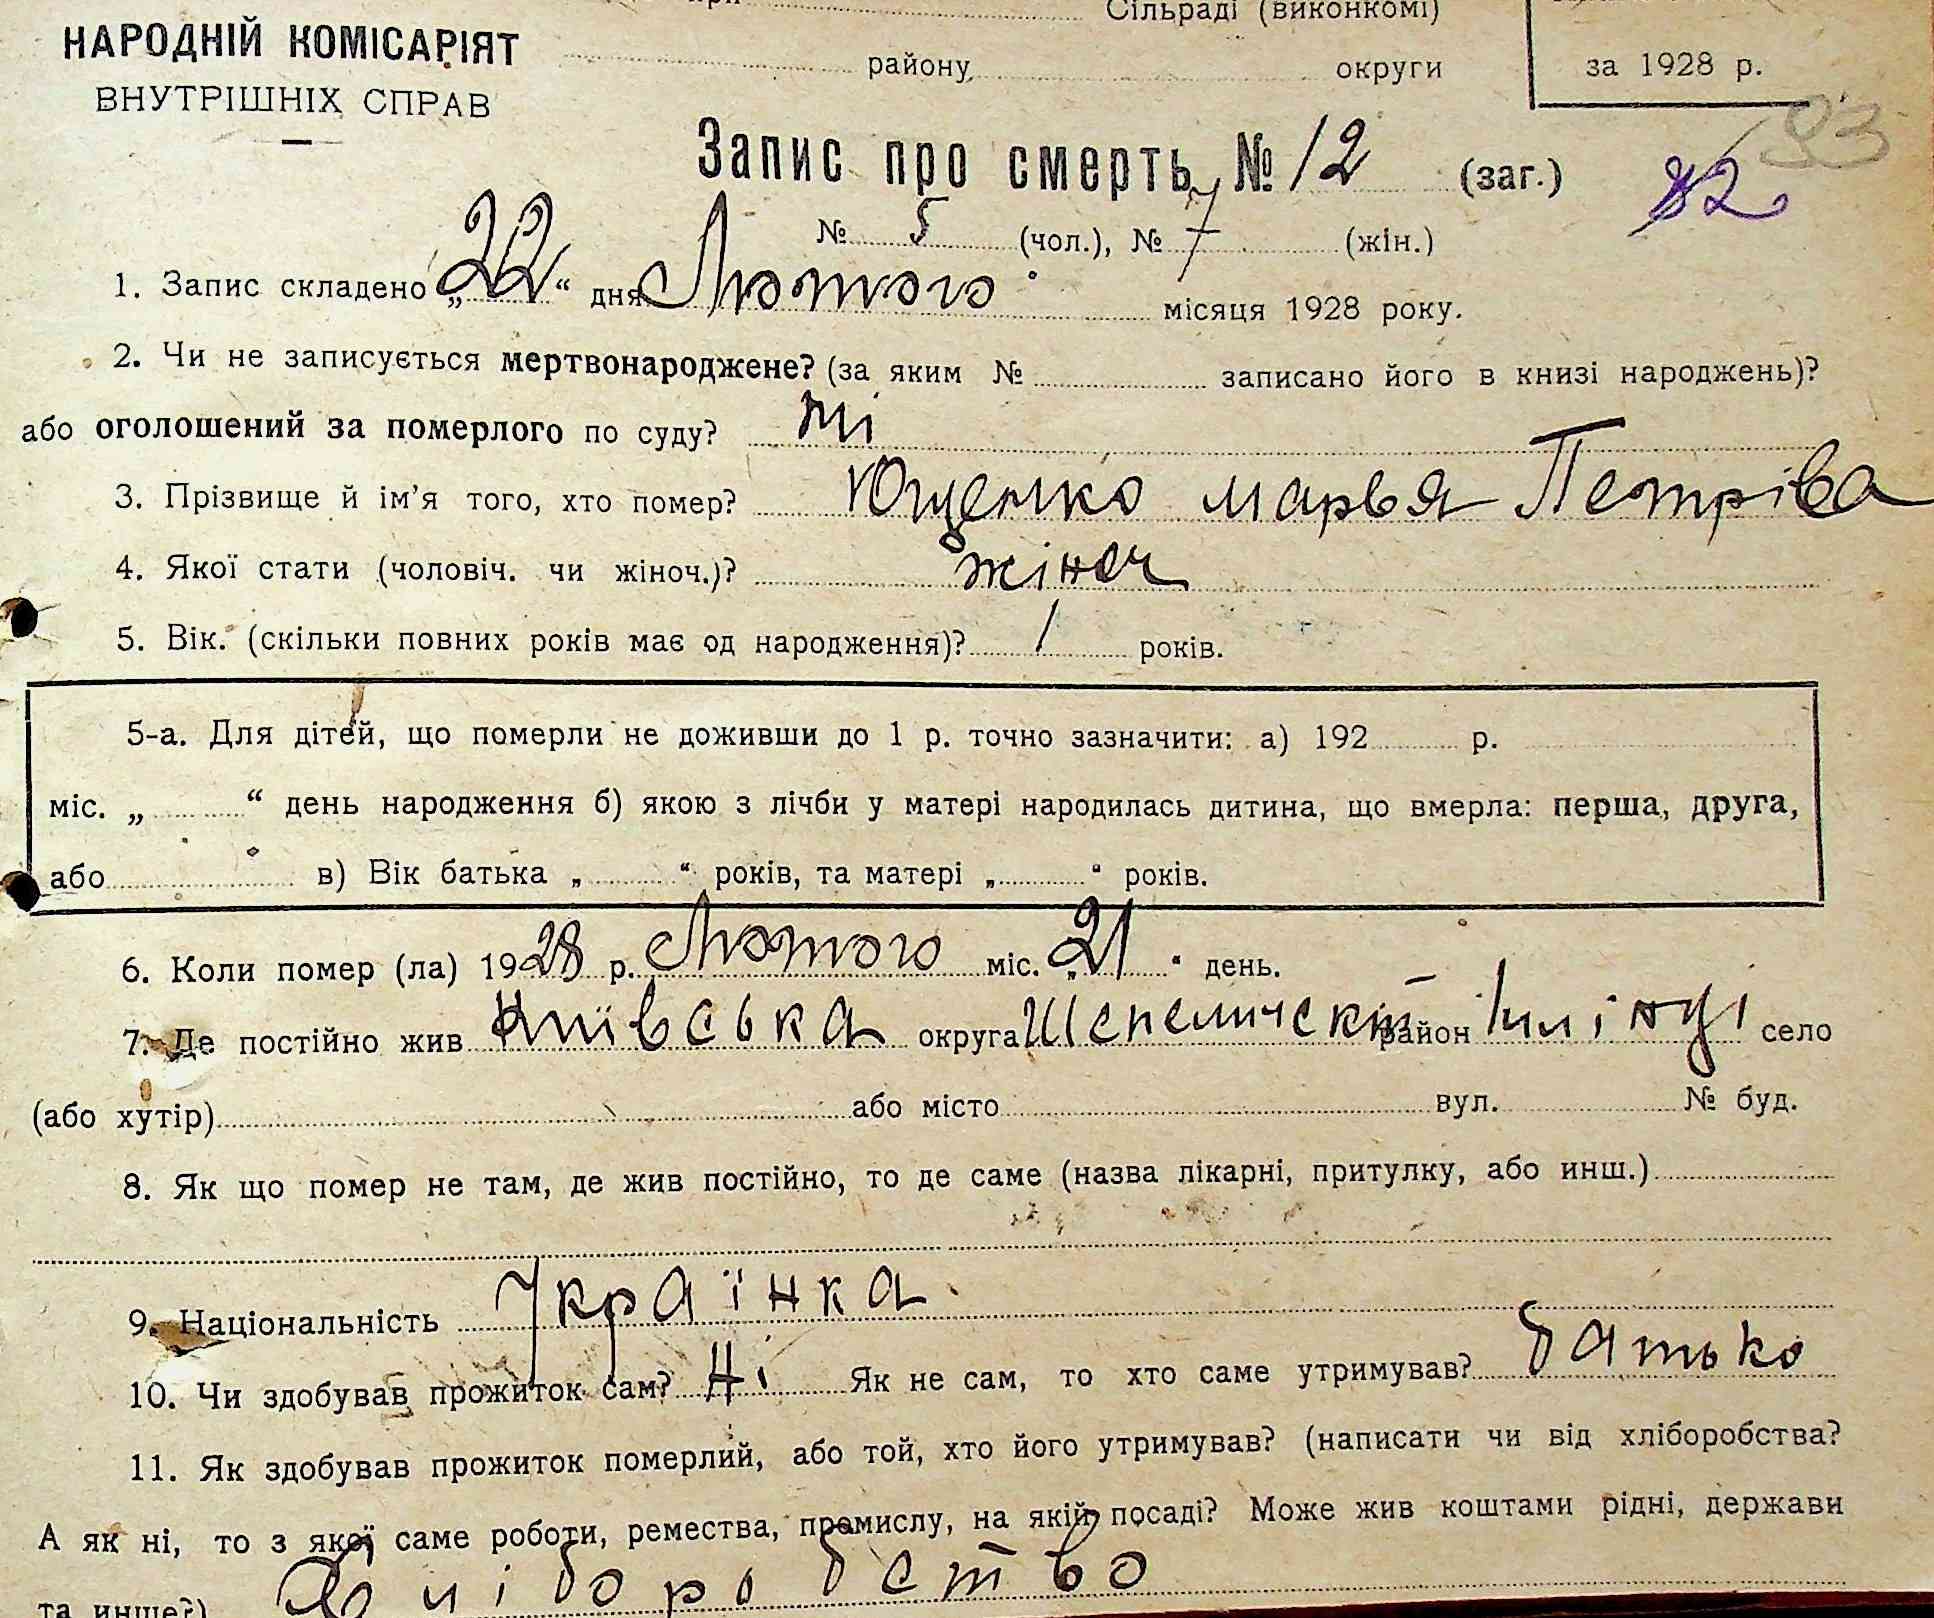 Сільраді (виконкомі)
НАРОДНІЙ КОМІСАРІЯТ
ВНУТРІШНІХ СПРАВ
району округи
за 1928 р.
93
82
Запис про смерть № 12 (заг.)
№ 5 (чол.), № 7 (жін.)
1. Запис складено „22“ дня Лютого місяця 1928 року.
2. Чи не записується мертвонароджене? (за яким № записано його в книзі народжень)?
або оголошений за померлого по суду? ні
3. Прізвище й ім'я того, хто помер? Ющенко марья Петріва
4. Якої стати (чоловіч. чи жіноч.)? жіноч
5. Вік. (скільки повних років має од народження)? 1 років.
5-а. Для дітей, що померли не доживши до 1 р. точно зазначити: а) 192 р.
міс. „ “ день народження б) якою з лічби у матері народилась дитина, що вмерла: перша, друга,
або в) Вік батька „ “ років, та матері „ “ років.
6. Коли помер (ла) 1928 р. Лютого міс. „21“ день.
7. Де постійно жив Київська округа Шепеличскій район Іллінці село
(або хутір) або місто вул. № буд.
8. Як що помер не там, де жив постійно, то де саме (назва лікарні, притулку, або инш.)
9. Національність Українка
10. Чи здобував прожиток сам? Ні Як не сам, то хто саме утримував? батько
11. Як здобував прожиток померлий, або той, хто його утримував? (написати чи від хліборобства?
А як ні, то з якої саме роботи, ремества, промислу, на якій посаді? Може жив коштами рідні, держави
та инше?) Хліборобство